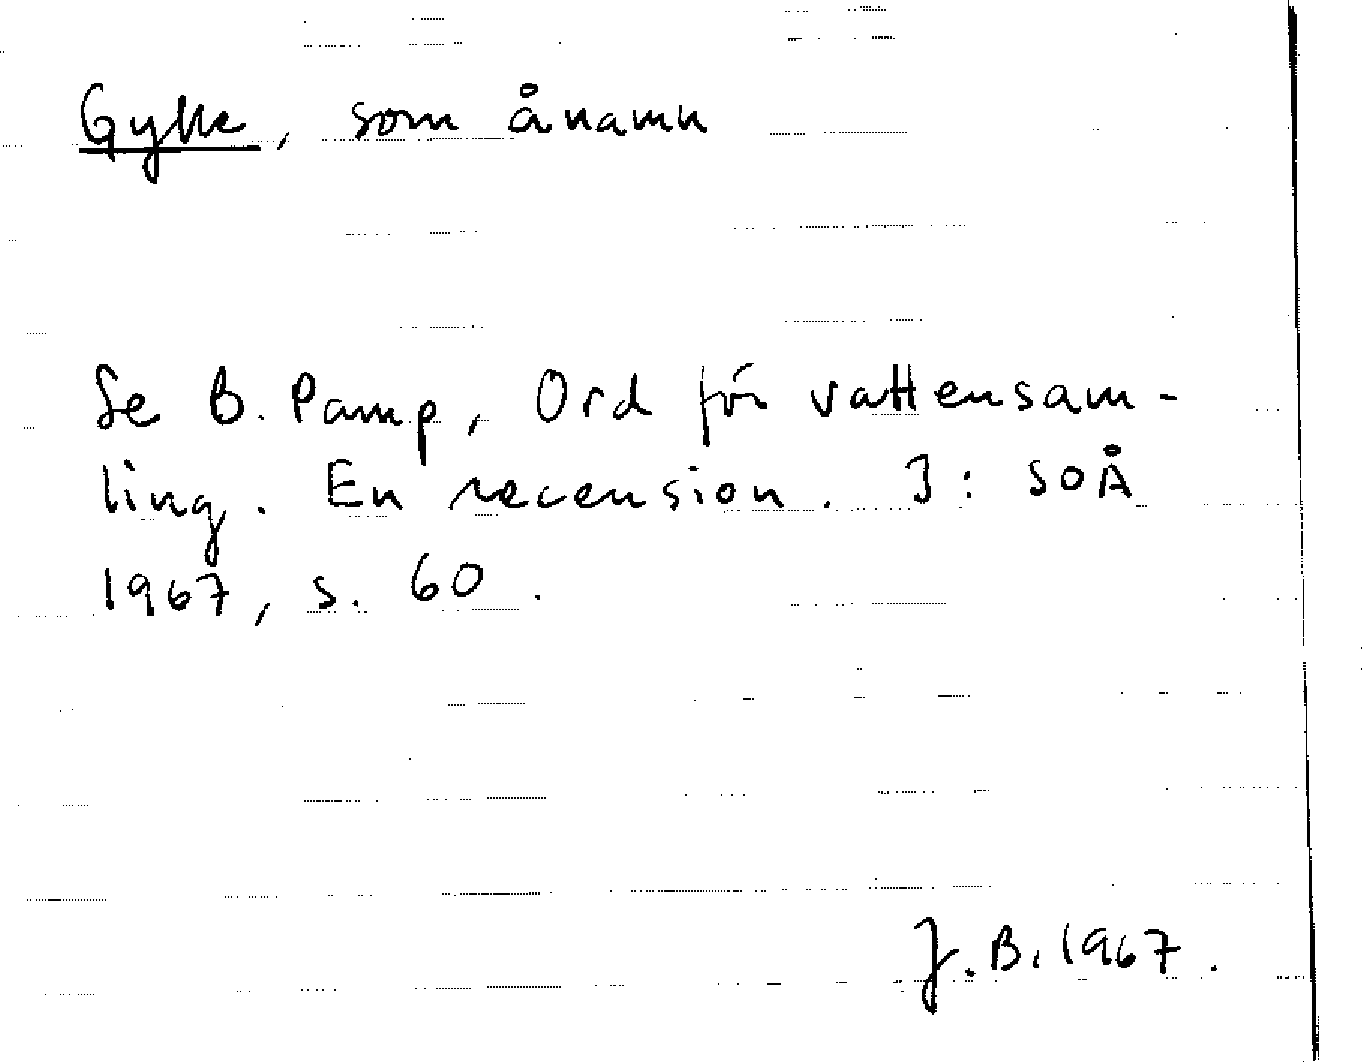 Gylle, som ånamn
Se B. Pamp, Ord för vattensam-
ling. En recension. I: SOÅ
1967, s. 60.
J.B. 1967.